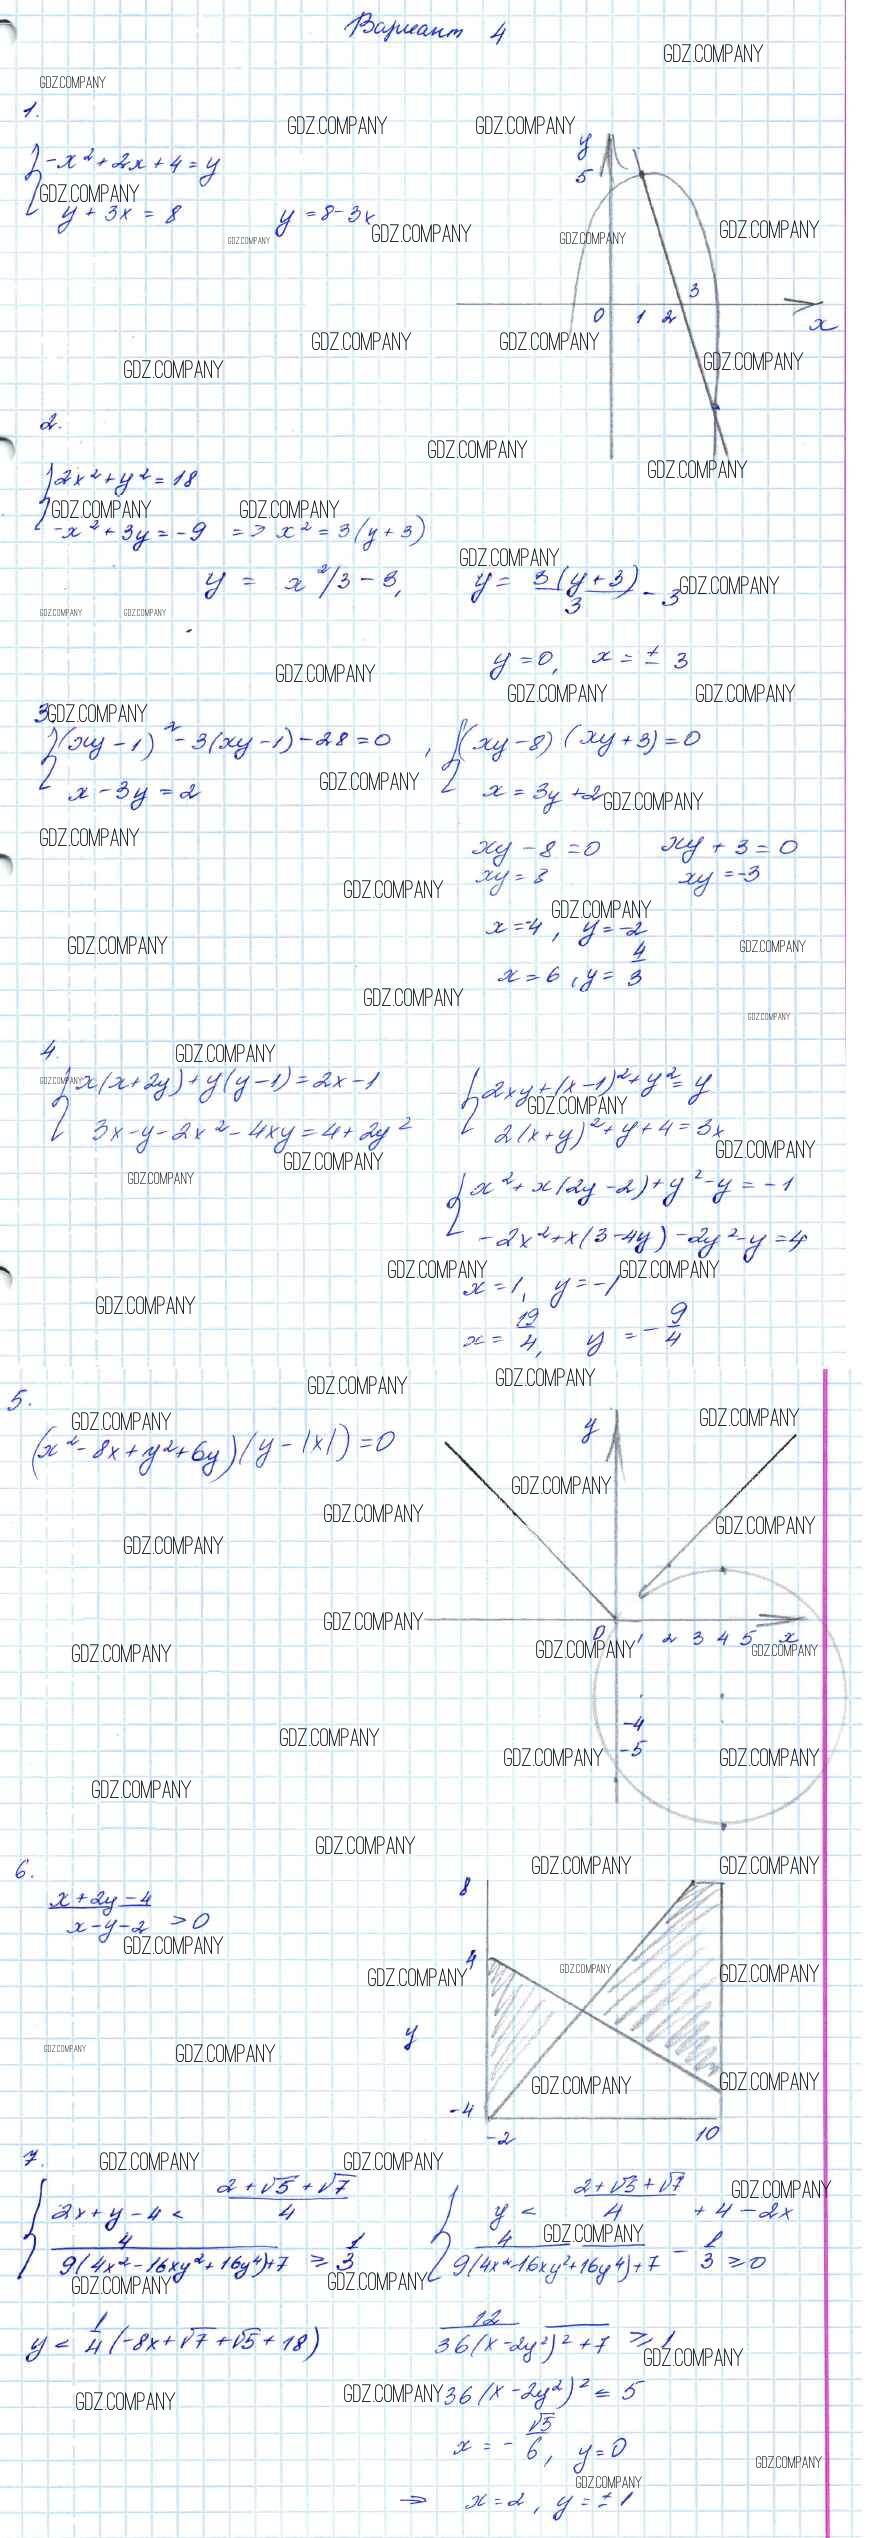 Вариант 4
1.
-x² + 2x + 4 = y
y + 3x = 8     y = 8 - 3x
y
5
0 1 2 3 x
2.
2x² + y² = 18
-x² + 3y = -9 => x² = 3(y + 3)
y = x²/3 - 3,     y = 3(y + 3)/3 - 3
y = 0, x = ± 3
3.
(xy - 1)² - 3(xy - 1) - 28 = 0 ,     (xy - 8)(xy + 3) = 0
x - 3y = 2     x = 3y + 2
xy - 8 = 0     xy + 3 = 0
xy = 8     xy = -3
x = -4, y = -2
x = 6, y = 4/3
4.
x(x + 2y) + y(y - 1) = 2x - 1     2xy + (x - 1)² + y² = y
3x - y - 2x² - 4xy = 4 + 2y²     2(x + y)² + y + 4 = 3x
x² + x(2y - 2) + y² - y = -1
-2x² + x(3 - 4y) - 2y² - y = 4
x = 1, y = -1
x = 19/4, y = -9/4
5.
(x² - 8x + y² + 6y)(y - |x|) = 0
y
0 1 2 3 4 5 x
-4
-5
6.
(x + 2y - 4)/(x - y - 2) > 0
8
4
y
-4
-2 10
7.
2x + y - 4 < (2 + √5 + √7)/4     y < (2 + √5 + √7)/4 + 4 - 2x
4/(9(4x² - 16xy² + 16y⁴) + 7) ≥ 1/3     4/(9(4x² - 16xy² + 16y⁴) + 7) - 1/3 ≥ 0
y < 1/4 (-8x + √7 + √5 + 18)     12/(36(x - 2y²)² + 7) ≥ 1
36(x - 2y²)² ≤ 5
x = -√5/6, y = 0
=> x = 2, y = ± 1
GDZ.COMPANY